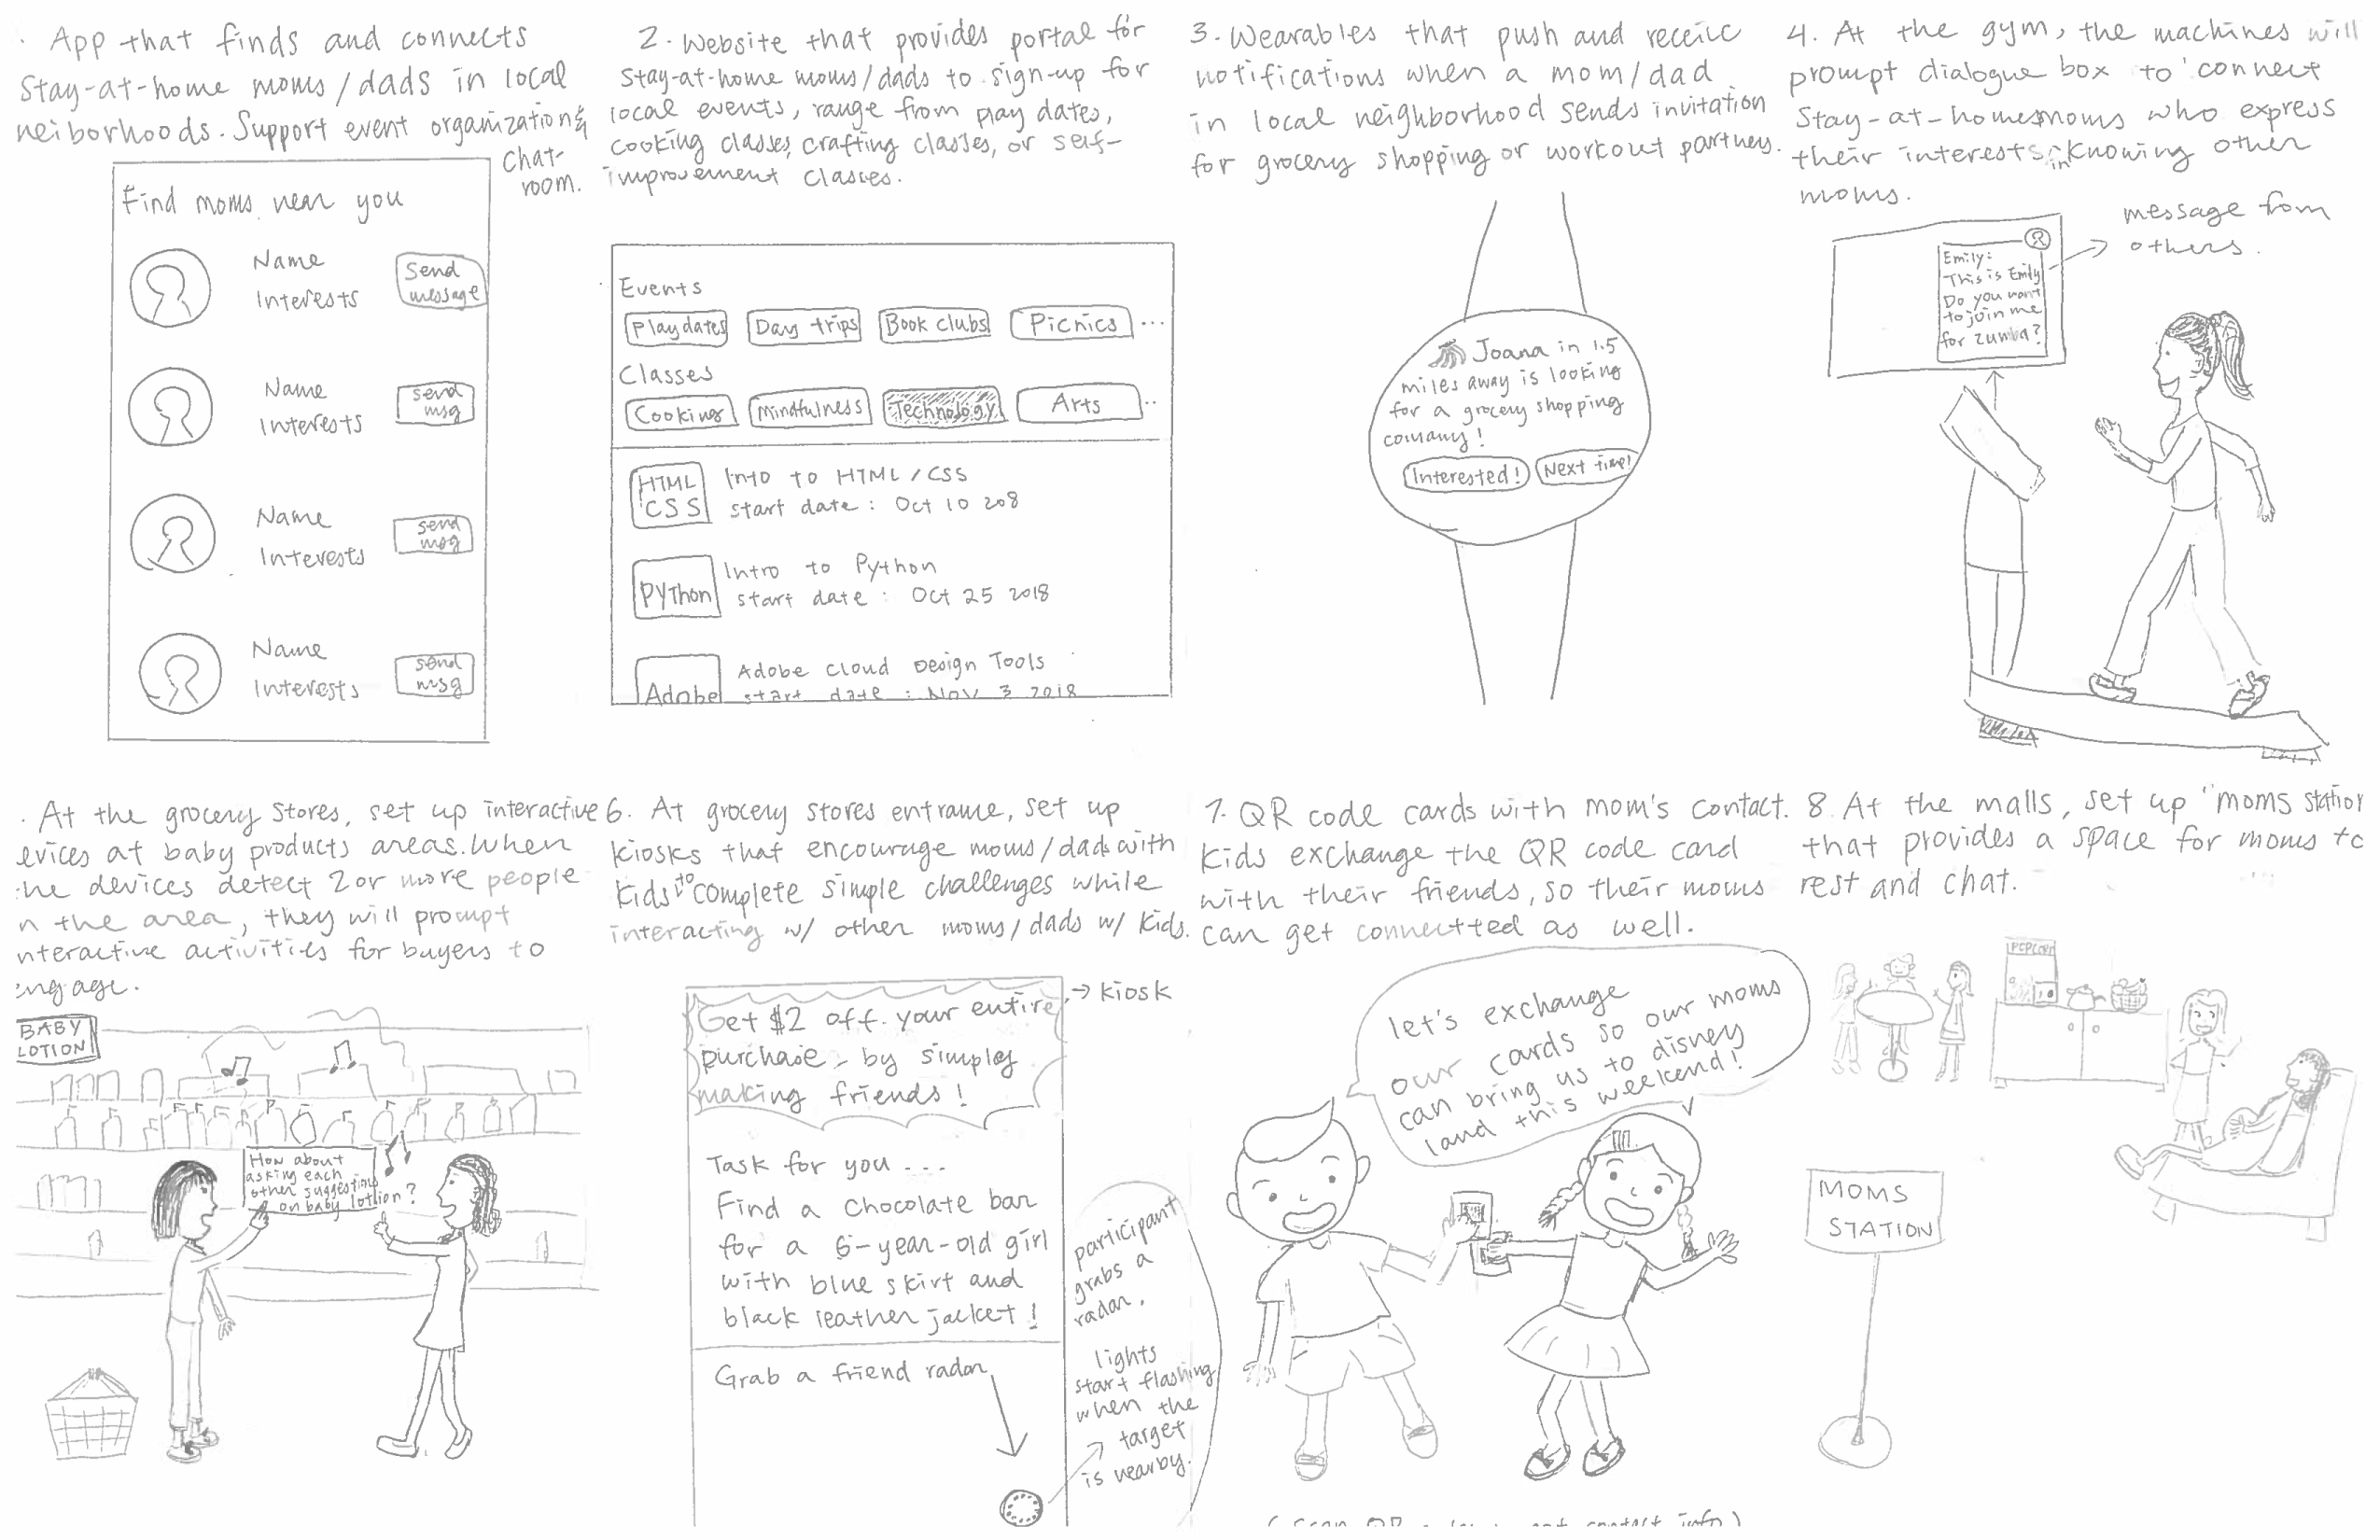 . App that finds and connects
Stay-at-home moms/dads in local
neiborhoods. Support event organization &
chat-
room.
Find moms near you
Name
Interests
Send
message
Name
Interests
send
msg
Name
Interests
send
msg
Name
Interests
send
msg
2. Website that provides portal for
Stay-at-home moms/dads to sign-up for
local events, range from play dates,
cooking classes, crafting classes, or self-
improvement classes.
Events
Playdates Day trips Book clubs Picnics ...
Classes
Cooking Mindfulness Technology Arts ..
HTML
CSS
Into to HTML/CSS
start date : Oct 10 208
PYThon
Intro to Python
start date : Oct 25 2018
Adobe
Adobe Cloud Design Tools
start date : Nov 3 2018
3. Wearables that push and receive
notifications when a mom/dad
in local neighborhood sends invitation
for grocery shopping or workout partners.
Joana in 1.5
miles away is looking
for a grocery shopping
comany!
Interested! Next time!
4. At the gym, the machines will
prompt dialogue box to connect
Stay-at-home moms who express
their interests in knowing other
moms.
message from
others.
Emily:
This is Emily
Do you want
to join me
for zumba?
. At the grocery stores, set up interactive
evices at baby products areas. When
he devices detect 2 or more people
n the area, they will prompt
nteractive activities for buyers to
engage.
BABY
LOTION
How about
asking each
other suggestions
on baby lotion?
6. At grocery stores entrame, set up
kiosks that encourage moms/dads with
kids to complete simple challenges while
interacting w/ other moms/dads w/ kids.
→ kiosk
Get $2 off your entire
purchase - by simpley
making friends!
Task for you ....
Find a chocolate bar
for a 6-year-old girl
with blue skirt and
black leather jacket!
Grab a friend radar
participant
grabs a
radar.
lights
start flashing
when the
target
is nearby.
7. QR code cards with mom's contact.
Kids exchange the QR code card
with their friends, so their moms
can get connectted as well.
let's exchange
our cards so our moms
can bring us to disney
land this weekend!
8. At the malls, set up "moms station
that provides a space for moms to
rest and chat.
POPCORN
MOMS
STATION